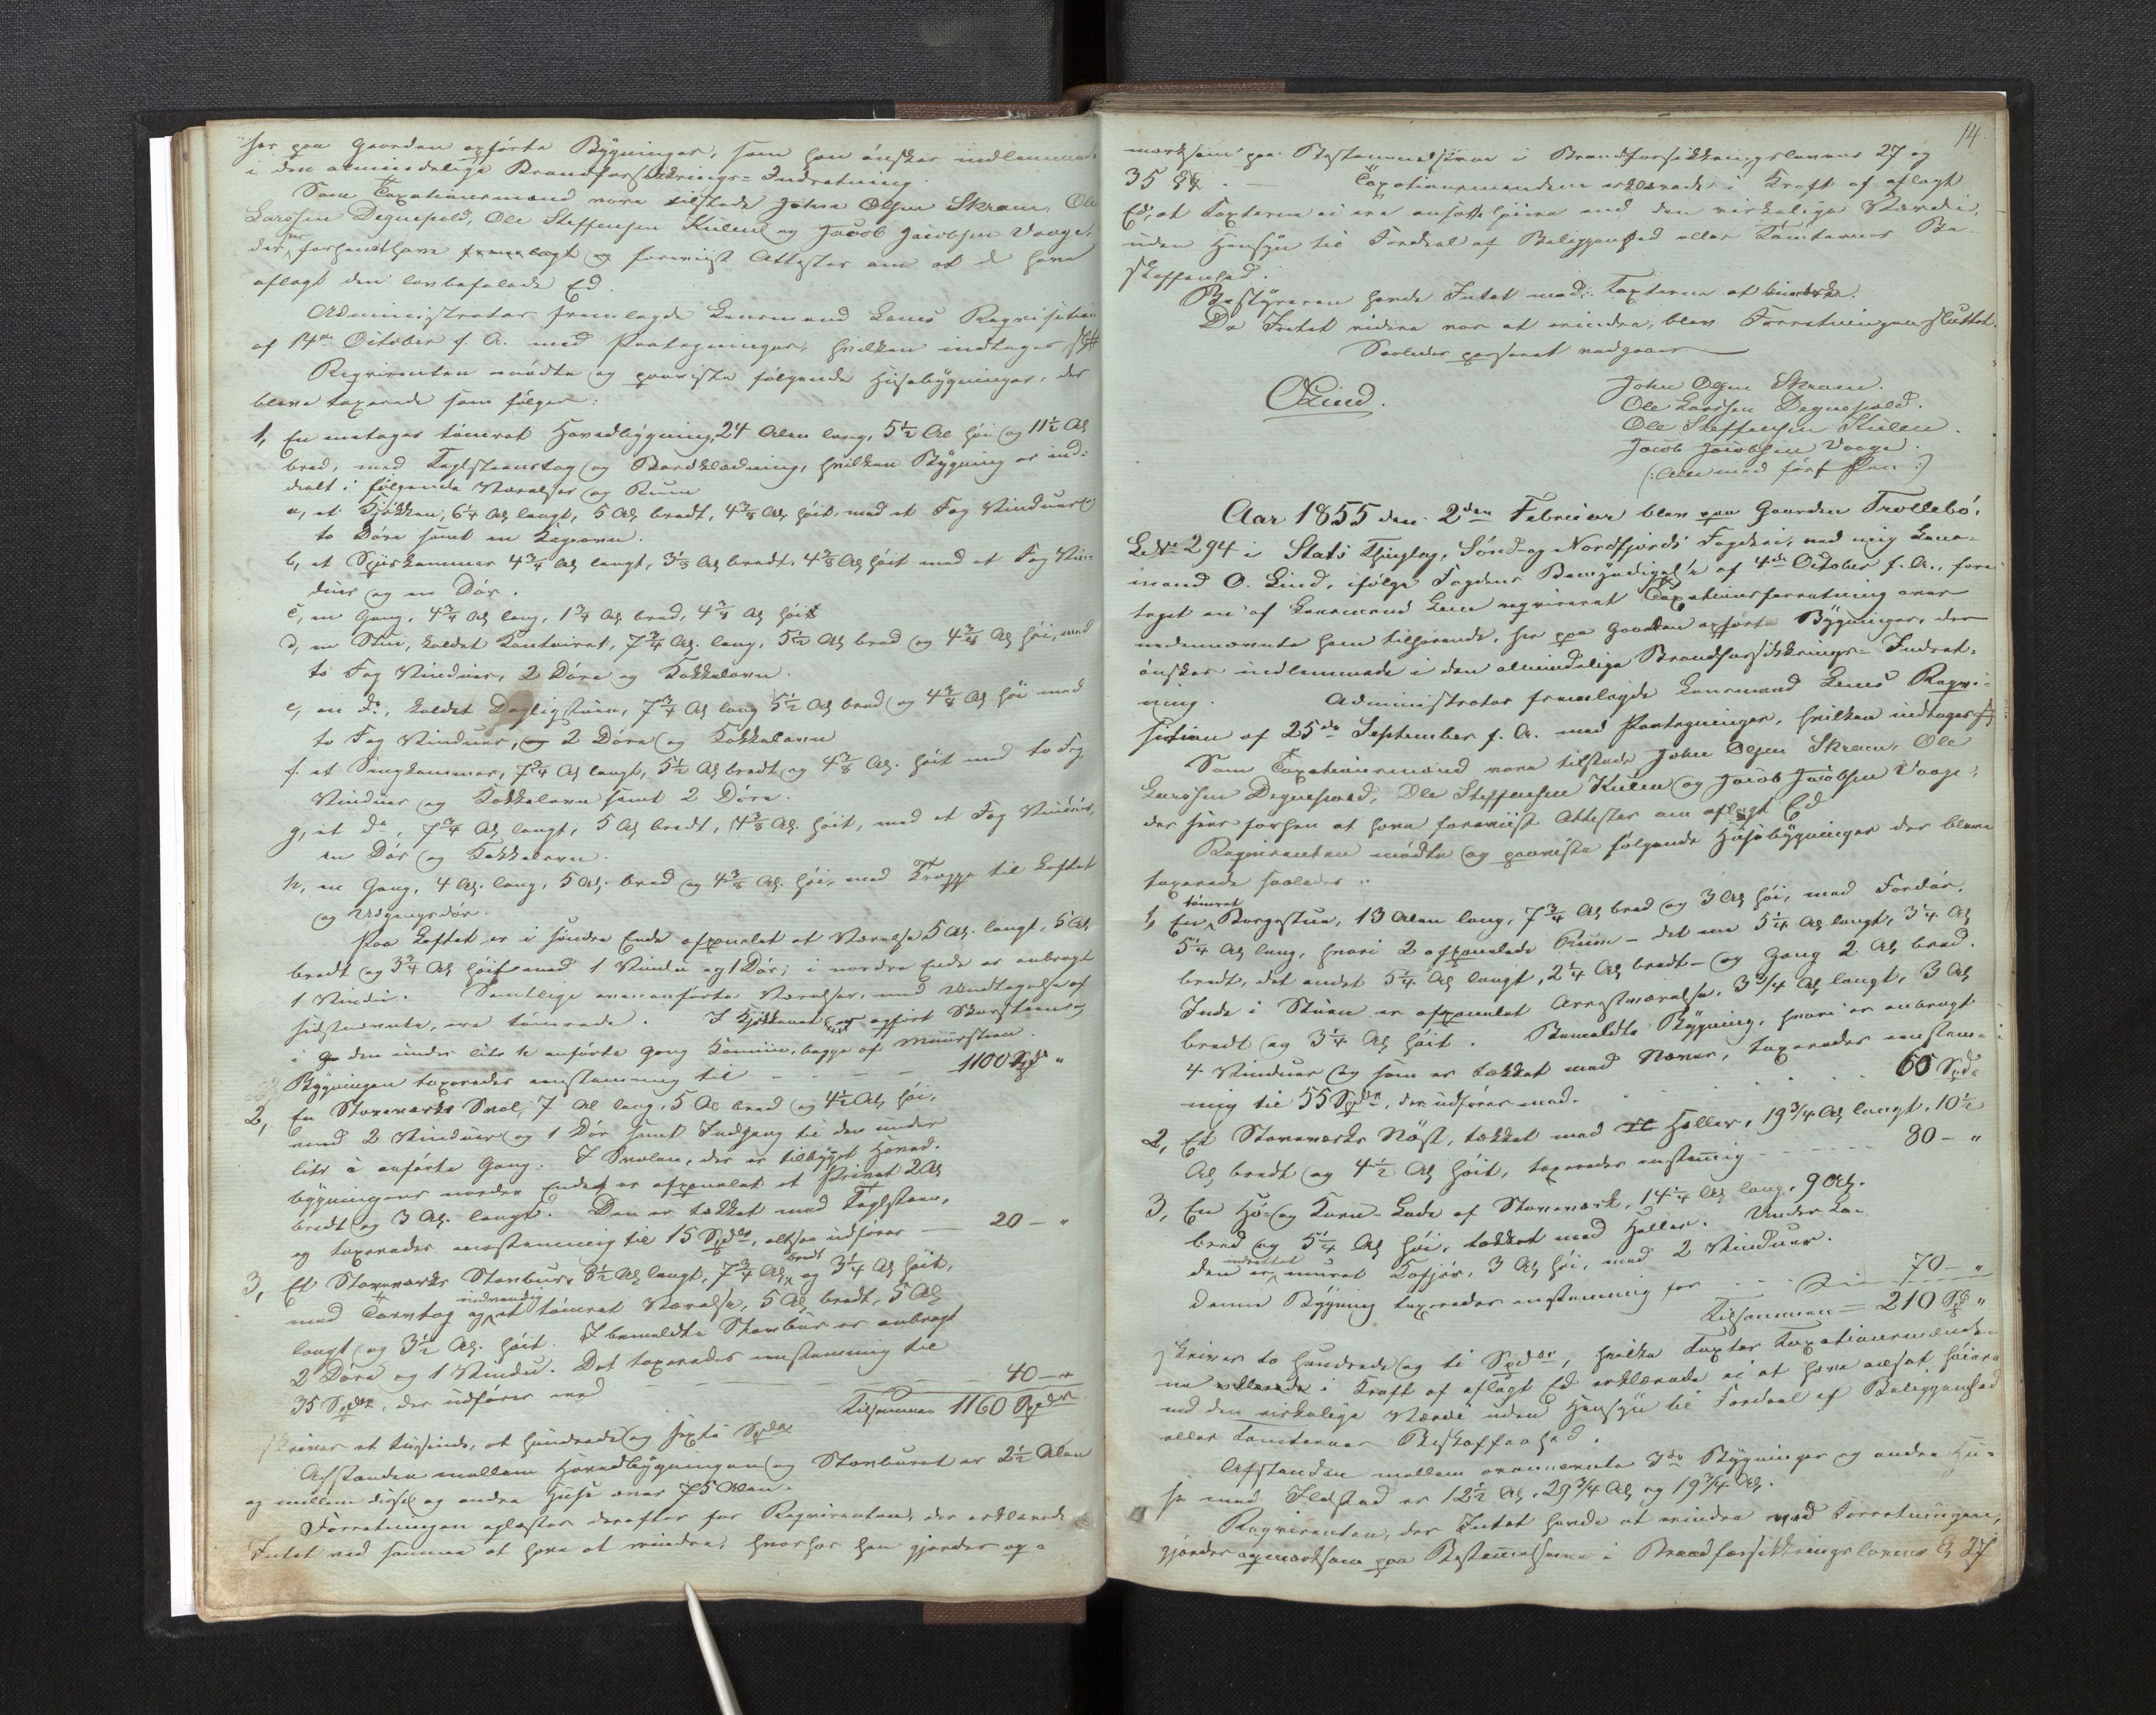 her paa Gaarden opførte Bygninger, som han ønsker indlemmede
i den almindelige Brandforsikkrings-Indretning.
Som Taxationsmænd vare tilstede John Olsen Skram, Ole
Larssen Degnepold, Ole Steffensen Kulen og Jacob Jacobsen Vaage,
der før have foreviist Attester om at de have
aflagt den lovbefalede Ed.
Administrator fremlagde Lensmand Lems Reqvisition
af 14de October f. A. med Paategninger, hvilken indtages
Reqvirenten mødte og paaviste følgende Huusebygninger, der
bleve taxerede som følger:
1, En  tømret Hovedbygning, 24 Alen lang, 5½ Al høi og 11½ Al
bred, med Teglsteenstag og Bordklædning, hvilken Bygning er ind-
deelt i følgende Værelser og Rum
a, et Kjøkken, 6¼ Al langt, 5 Al bredt, 4⅜ Al høit, med et Fag Vinduer og
to Døre samt en Bagerovn.
b, et Spiiskammer 4¾ Al langt, 3⅓ Al bredt, 4⅜ Al høit med et Fag Vin-
duer og en Dør.
c, en Gang, 4¾ Al lang, 1¾ Al bred, 4⅜ Al høi
d, en Stue, kaldet Kontoiret, 7¾ Al. lang, 5½ Al bred og 4⅜ Al høi, med
to Fag Vinduer, 2 Døre og Kakkelovn.
e, en do, kaldet Dagligstuen, 7¾ Al lang 5½ Al bred og 4⅜ Al høi med
to Fag Vinduer, 2 Døre og Kakkelovn
f. et Sengkammer, 7¾ Al langt, 5½ Al bredt og 4⅜ Al. høit med to Fag
Vinduer og Kakkelovn samt 2 Døre.
g, et do, 7¾ Al langt, 5 Al bredt, 4⅜ Al. høit, med et Fag Vinduer,
en Dør og Kakkelovn.
h, en Gang, 4 Al. lang, 5 Al. bred og 4⅜ Al. høi, med Trappe til Loftet
og Udgangsdør.
Paa Loftet er i søndre Ende afpanelet et Værelse 5 Al. langt, 5 Al
bredt og 3¾ Al høit med 1 Vindu og 1 Dør; i nordre Ende er anbragt
1 Vindu. Samtlige ovenanførte Værelser, med Undtagelse af
sidstnævnte, ere tømrede. I Kjøkkenet er opført Skorsteen og
i den under litr h anførte Gang Kamin, begge af Muursteen.
Bygningen taxeredes eenstemmig til — — — 1100 Spd "
2, En Stavværks Sval, 7 Al lang, 5 Al bred og 4½ Al høi,
med 2 Vinduer og 1 Dør samt Indgang til den under
litr c anførte Gang. I Svalen, der er tilbygget Hoved-
bygningens nordre Ende er afpanelet et Privet 2 Al
bredt og 3 Al. langt. Den er tækket med Teglsteen,
og taxeredes eenstemmig til 15 Spdlr, altsaa udføres — 20 — "
3, Et Stavværks Stavbur, 8½ Al langt, 7¾ Al bredt og 3¼ Al høit,
med Torvtag og indvendig et tømret Værelse, 5 Al bredt, 5 Al
langt og 3½ Al. høit. I bemeldte Stavbur er anbragt
2 Døre og 1 Vindu. Det taxeredes eenstemmig til
35 Spdlr, der udføres med — — — 40 — "
Tilsammen 1160 Spdlr
skriver et tusinde, et hundrede og sexti Spdlr
Afstanden mellem Hovedbygningen og Stavburet er 2½ Alen
og mellem disse og andre Huse over 75 Alen.
Forretningen oplæstes derefter for Reqvirenten, der erklærede
Intet ved samme at have at erindre, hvorhos han gjordes op-
14
mærksom paa Bestemmelserne i Brandforsikkringslovens 27 og
35 §§. — Taxationsmændene erklærede i Kraft af aflagt
Ed, at Taxterne ei ere ansatte høiere end den virkelige Værdi,
uden Hensyn til Fordeel af Beliggenhed eller Tomternes Be-
skaffenhed.
Bestyreren havde Intet mod Taxterne at bemærke.
Da Intet videre var at erindre, blev Forretningen sluttet.
Saaledes passeret vedgaaer
OLind.
John Olsen Skram.
Ole Larssen Degnepold.
Ole Steffensen Kulen.
Jacob Jacobsen Vaage.
(: Alle med ført Pen :)
Aar 1855 den 2den Februar blev paa Gaarden Trollebø,
LNo 294 i Stats Thinglag, Sønd- og Nordfjords Fogderi, ved mig Lens-
mand O. Lind, ifølge Fogdens Bemyndigelse af 4de October f. A., fore-
taget en af Lensmand Lem reqvireret Taxationsforretning over
nedennævnte ham tilhørende, her paa Gaarden opførte Bygninger, der
ønskes indlemmede i den almindelige Brandforsikkrings-Indret-
ning. Administrator fremlagde Lensmand Lems Reqvi-
sition af 25de September f. A. med Paategninger, hvilken indtages
Som Taxationsmænd vare tilstede John Olsen Skram, Ole
Larssen Degnepold, Ole Steffensen Kulen og Jacob Jacobsen Vaage,
der have forhen at have foreviist Attester om aflagt Ed
Reqvirenten mødte og paaviste følgende Huusebygninger der bleve
taxerede saaledes:
1, En tømret Borgestue, 13 Alen lang, 7¾ Al bred og 3 Al høi, med Fordør,
5¼ Al lang, hvori 2 afpanelede Rum — det ene 5¼ Al langt, 3¼ Al
bredt, det andet 5¼ Al langt, 2¼ Al bredt — og Gang 2 Al bred.
Inde i Stuen er afpanelet Arrestværelse, 3¾ Al langt, 3 Al
bredt og 3¼ Al høit. Bemeldte Bygning, hvori er anbragt
4 Vinduer og som er tækket med Næver, taxeredes eenstem-
mig til 55 Spdlr, der udføres med . . . . . 60 Spd "
2, Et Stavværks Nøst, tækket med Heller, 19¾ Al langt, 10½
Al bredt og 4½ Al høit, taxeredes enstemig — — — 80 — "
3, En Hø- og Korn-Lade af Stavværk, 14¼ Al lang, 9 Al.
bred og 5¼ Al høi, tækket med Heller. Under La-
den er indrettet muret Fæfjøs, 3 Al høi, med 2 Vinduer.
Denne Bygning taxeredes enstemmig for — — — 70 — "
Tilsammen = 210 Spd "
skriver to hundrede og ti Spdlr, hvilke Taxter Taxationsmænde-
ne i Kraft af aflagt Ed erklærede ei at have ansat høiere
end den virkelige Værdi uden Hensyn til Fordeel af Beliggenhed
eller Tomternes Beskaffenhed.
Afstanden mellem ovennævnte 3de Bygninger og andre Hu-
se med Ildsted er 12½ Al, 29¾ Al og 19¾ Al.
Reqvirenten, der Intet havde at erindre mod Forretningen,
gjordes opmærksom paa Bestemelserne i Brandforsikkringslovens § 27